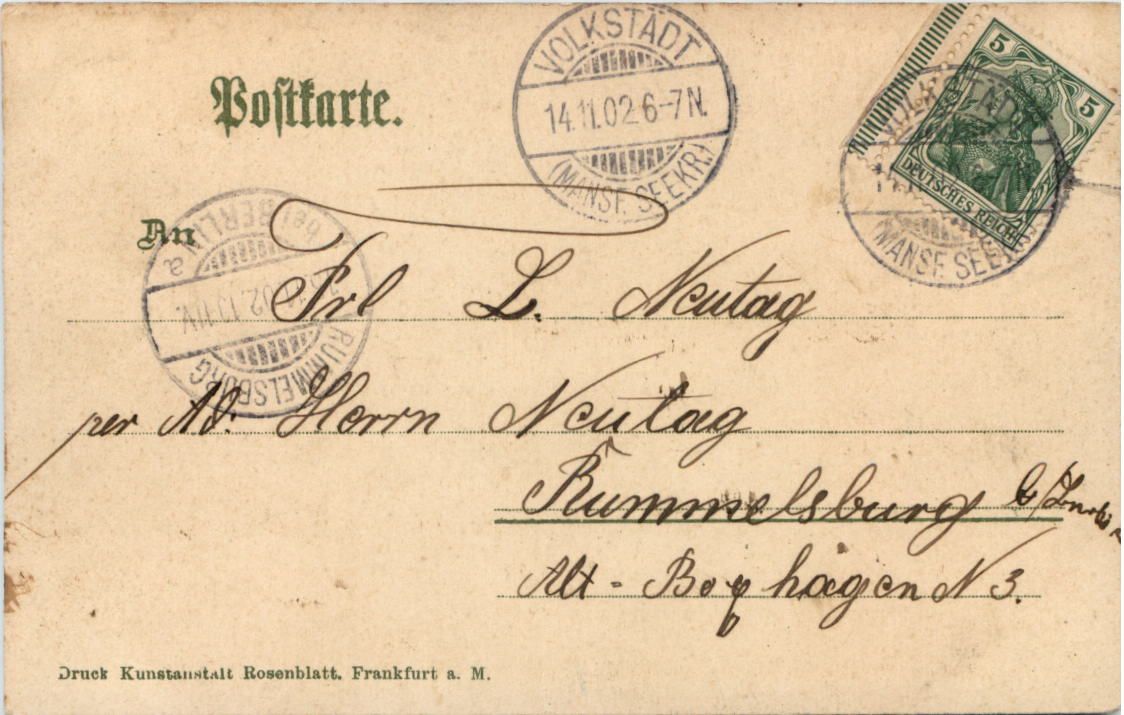 VOLKSTÄDT
14.11.02 6-7N.
(MANSF. SEEKR.)
5
5
DEUTSCHES REICH
(MANSF. SEEKR.)
Postkarte.
bei BERLIN
RUMMELSBURG
An
Frl L. Neutag
per Ad. Herrn Neutag
Rummelsburg b/
Alt-Boxhagen N 3.
Druck Kunstanstalt Rosenblatt. Frankfurt a. M.